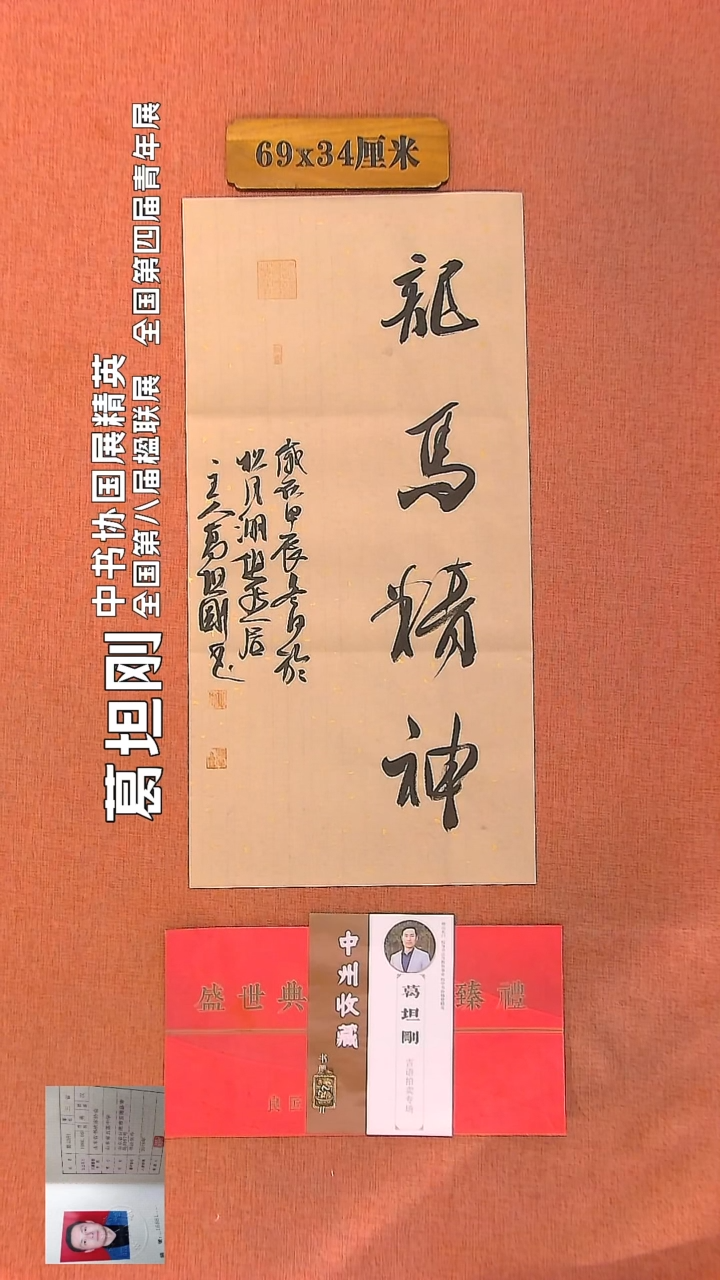 69x34厘米
龍馬精神
歲在甲辰冬日於
主人葛坦剛書
葛坦刚
中书协国展精英
全国第八届楹联展 全国第四届青年展
盛世典
臻禮
中州收藏
葛坦剛
吉语拍卖专场